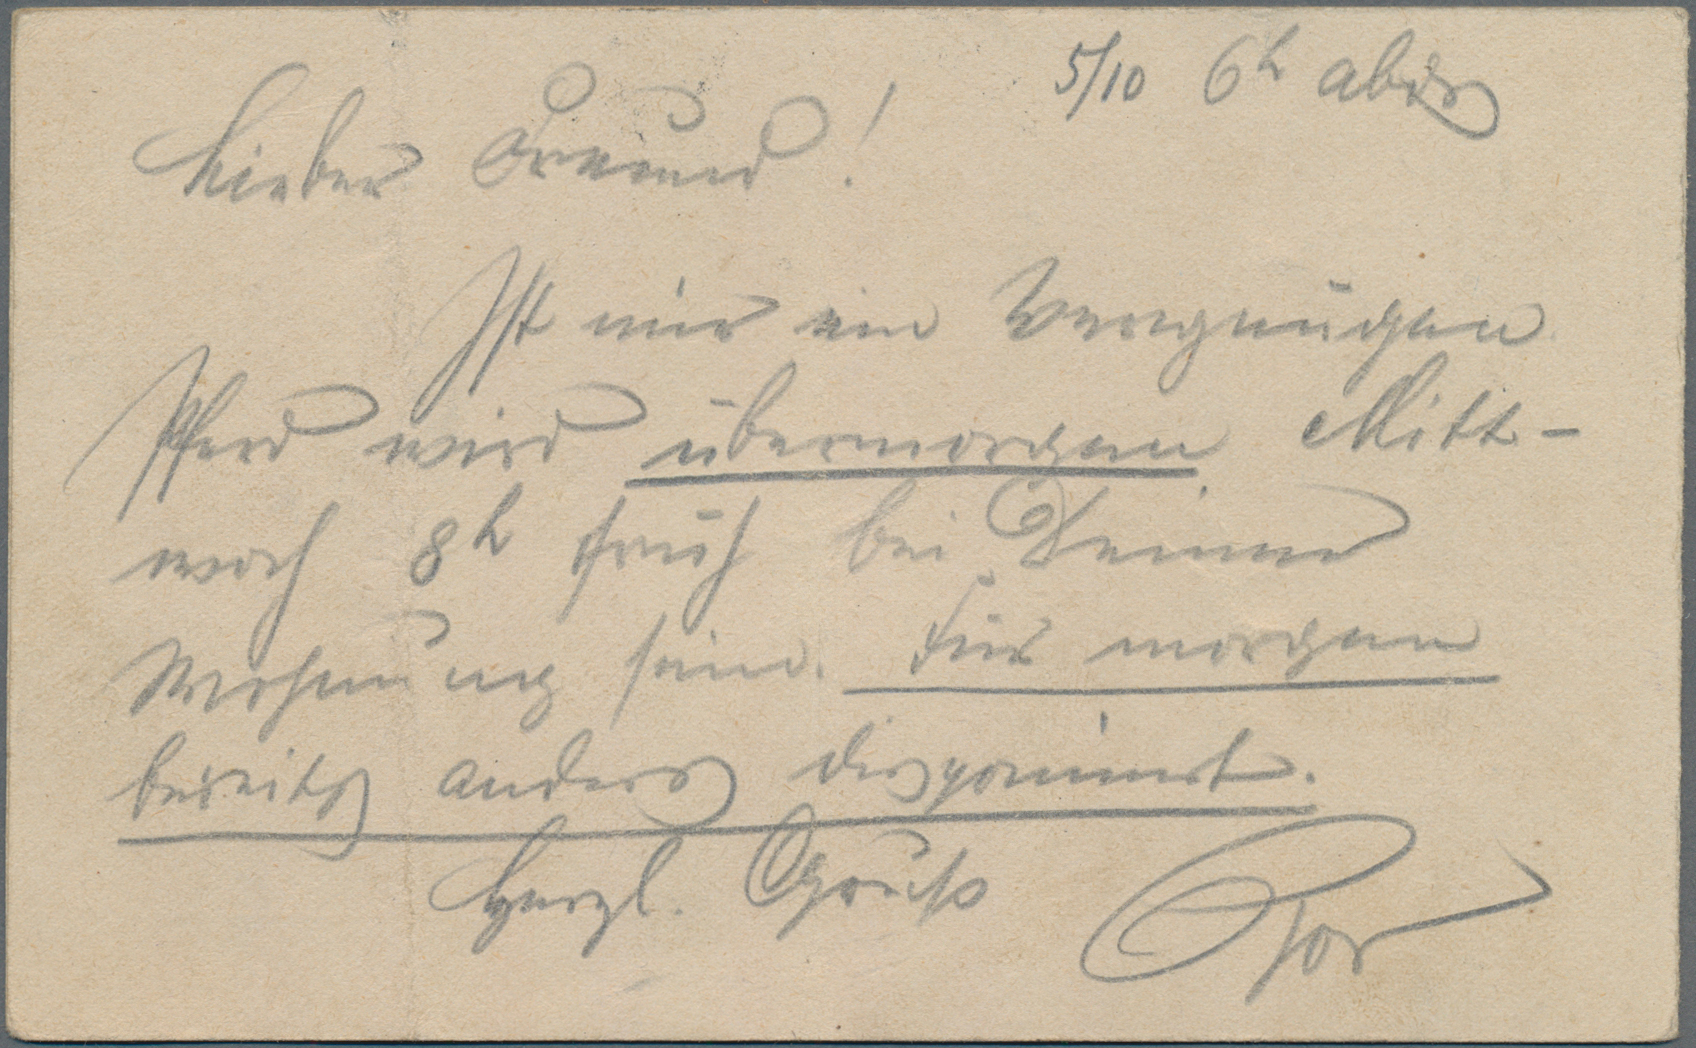 5/10 6h abds
Lieber Freund!
Ist mir ein Vergnügen
Pferd wird übermorgen Mitt-
woch 8h früh bei Deiner
Wohnung sein. Für morgen
bereits anders disponiert.
Herzl. Gruß